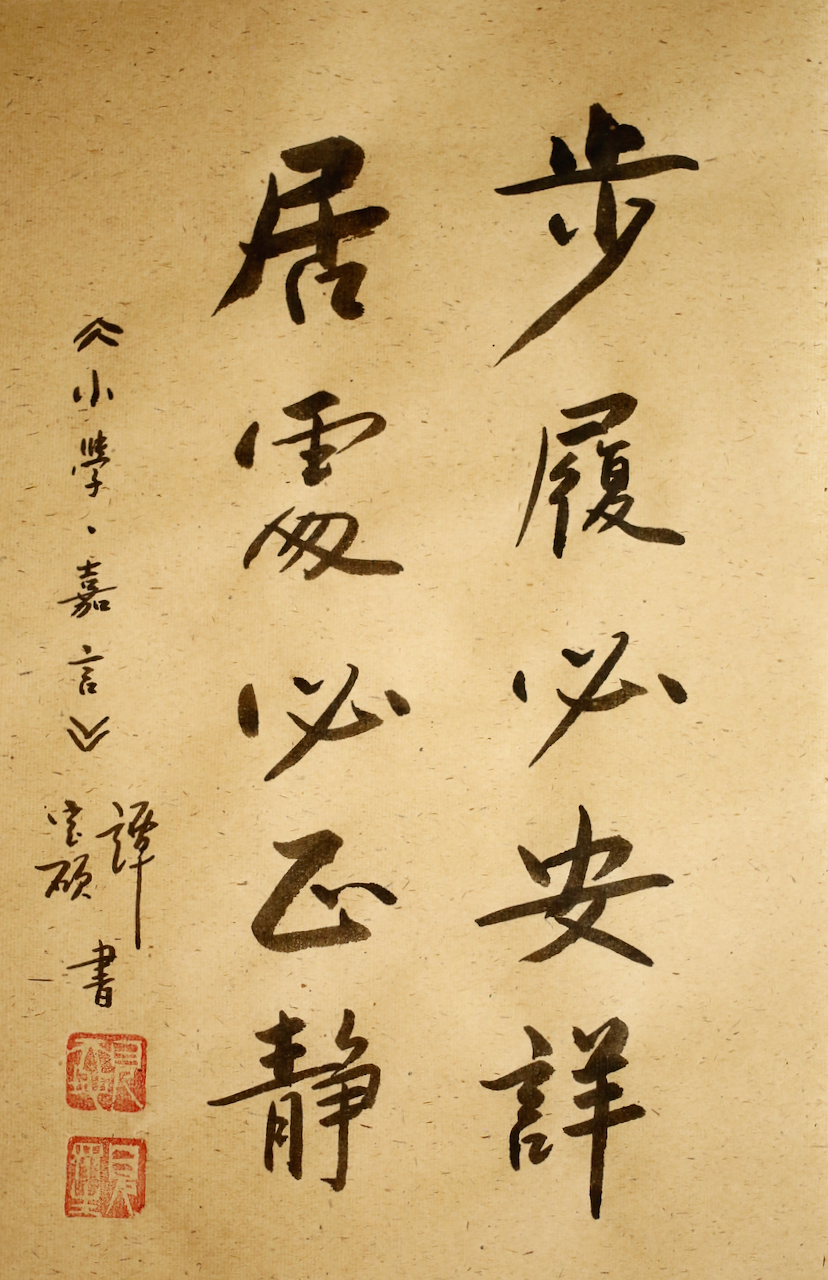 步履必安詳
居處必正靜
《小學·嘉言》
譚寶碩書